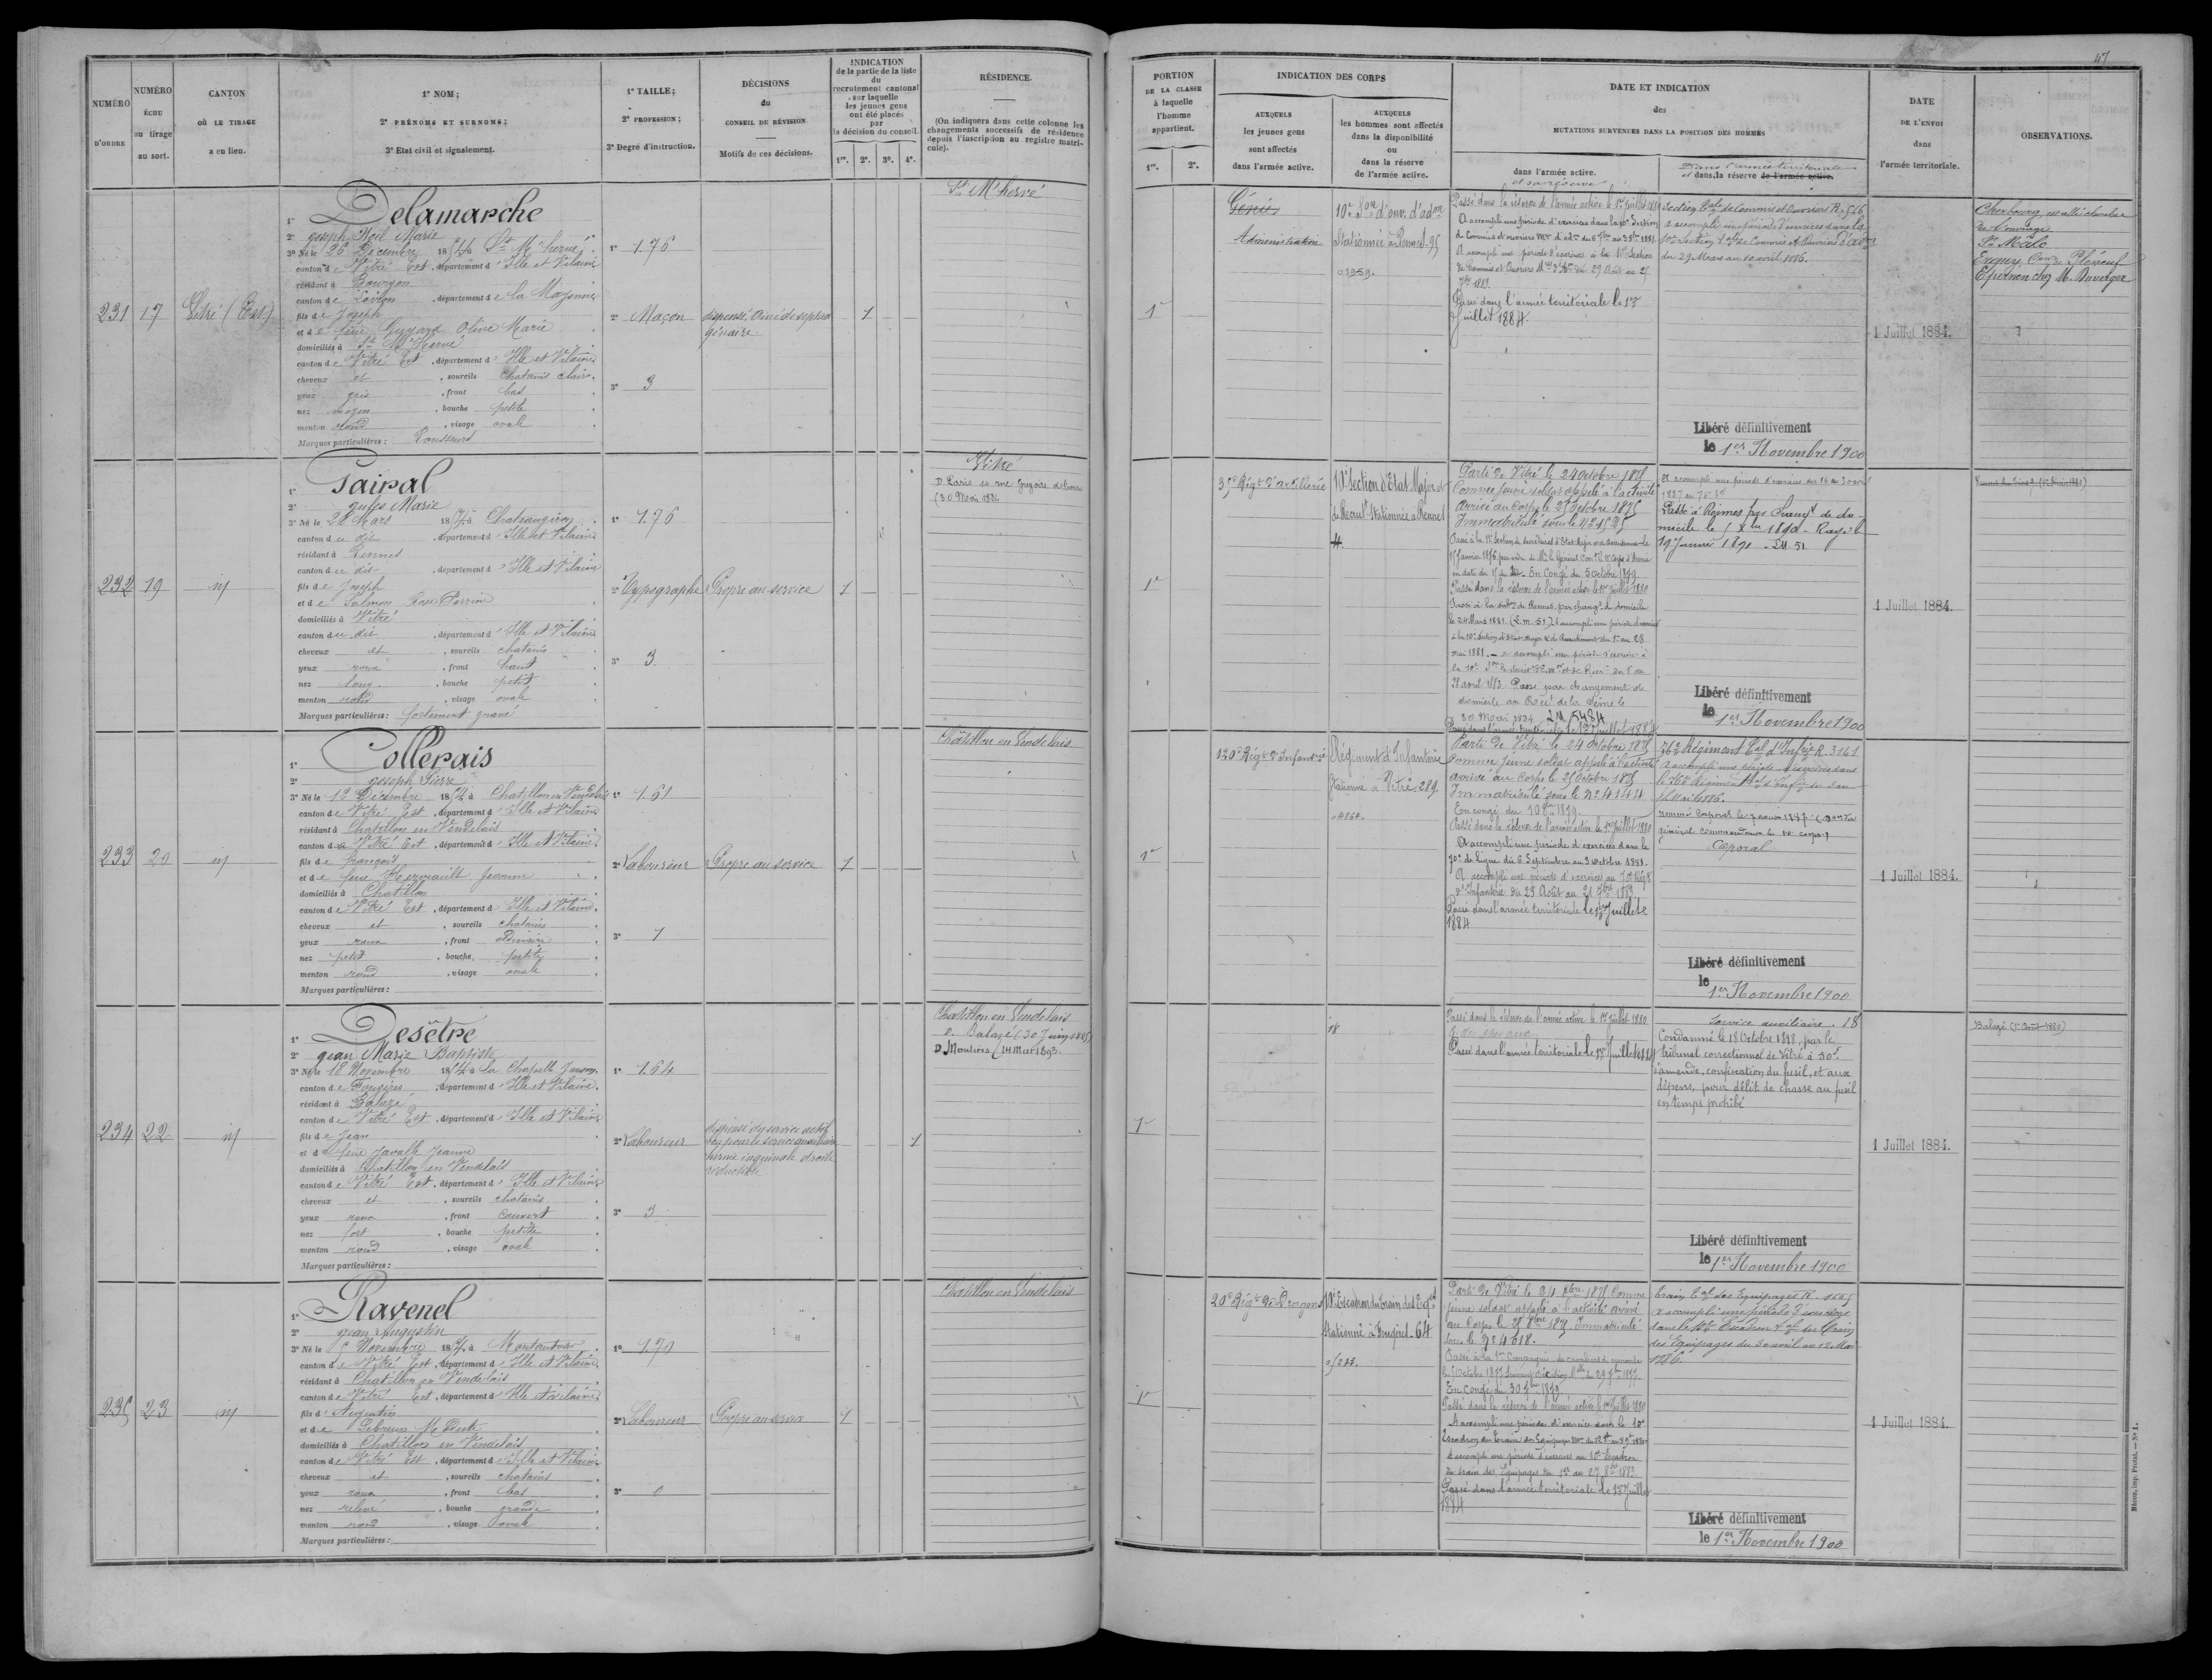 47
NUMÉRO
D'ORDRE
NUMÉRO
ÉCHU
au tirage
au sort.
CANTON
OÙ LE TIRAGE
a eu lieu.
1° NOM;
2° PRÉNOMS ET SURNOMS;
3° Etat civil et signalement.
1° TAILLE;
2° PROFESSION;
3° Degré d'instruction.
DÉCISIONS
du
CONSEIL DE RÉVISION
Motifs de ces décisions.
INDICATION
de la partie de la liste
du
recrutement cantonal
sur laquelle
les jeunes gens
ont été placés
par
la décision du conseil.
1re. 2e. 3e. 4e.
RÉSIDENCE.
(On indiquera dans cette colonne les
changements successifs de résidence
depuis l'inscription au registre matri-
cule).
PORTION
DE LA CLASSE
à laquelle
l'homme
appartient.
1re. 2e.
INDICATION DES CORPS
AUXQUELS
les jeunes gens
sont affectés
dans l'armée active.
AUXQUELS
les hommes sont affectés
dans la disponibilité
ou
dans la réserve
de l'armée active.
DATE ET INDICATION
des
MUTATIONS SURVENUES DANS LA POSITION DES HOMMES
dans l'armée active.
et sa réserve
Dans l'armée territoriale
et dans la réserve de l'armée active.
DATE
DE L'ENVOI
dans
l'armée territoriale.
OBSERVATIONS.
231
17
Vitré (Est)
1° Delamarche
2° Joseph Noël Marie
3° Né le 26 Décembre 1854 à St M'hervé
canton de Vitré Est, département d'Ille et Vilaine
résidant à Bourgon
canton de Loiron, département de la Mayenne
fils de Joseph
et de feue Guyard Olive Marie
domiciliés à St M'Hervé
canton de Vitré Est, département d'Ille et Vilaine
cheveux et, sourcils chatains clairs
yeux gris, front bas
nez moyen, bouche petite
menton rond, visage ovale
Marques particulières: Rousseurs
1° 1.76
2° Maçon
3° 3
dispensé Ainé de septua
génaire
1
St M'hervé
1re
Génie
Administration
10e Son d'ouv. d'adon
Stationnée à Rennes. 95
Passé dans la réserve de l'armée active le 1er Juillet 1880
A accompli une période d'exercices dans la 10e Section
de Commis et ouvriers
A accompli une période d'exercices à la 10e Section
de Commis et Ouvriers du 29 Août au 27
7bre 1883.
Passé dans l'armée territoriale le 1er
Juillet 1884.
Section tale de Commis et Ouvriers R. 546
a accompli une période d'exercices dans la
10e Section tale de Commis et Ouvriers d'Adon
du 29 Mars au 10 avril 1886.
Libéré définitivement
le 1er Novembre 1900
1 Juillet 1884.
Cherbourg
St Malo
Erquy Con de Pléneuf
Epernon chez M. Duverger
232
19
id
1° Pairal
2° Jules Marie
3° Né le 28 Mars 1854 à Chateaugiron
canton du dit, département d'Ille et Vilaine
résidant à Rennes
canton du dit, département d'Ille et Vilaine
fils de Joseph
et de Salmon Rose Perrine
domiciliés à Vitré
canton du dit, département d'Ille et Vilaine
cheveux et, sourcils chatains
yeux roux, front haut
nez long, bouche petite
menton rond, visage ovale
Marques particulières: fortement gravé
1° 1.76
2° Typographe
3° 3
Propre au service
1
Vitré
D Paris 14 rue Grégoire de Tours
(30 Mai 1884
1re
35e Régt d'artillerie
10e Section d'Etat Major et
de Recrutt Stationnée à Rennes
4.
Parti de Vitré le 24 Octobre 1875
Comme jeune soldat appelé à l'activité
Arrivé au Corps le 25 Octobre 1875
Immatriculé sous le No 1525
En Congé du 5 octobre 1879.
Passé dans la réserve de l'armée active le 1er Juillet 1880
Passé à la subon de Rennes, par changt de domicile
le 24 Mars 1881. (L.m. 51) A accompli une période d'exercices
à la 10e Section d'Etat Major & de Recrutement du 1er au 28
mai 1881. - a accompli une période d'exercices à
Passé par changement de
domicile au Rect de la Seine le
30 Mai 1884. LM 5484
Passé dans l'armée territoriale le 1er Juillet 1884
A accompli une période d'exercices du 18 au 30 avril
1887 au 76e Tal
Passé à Rennes par changt de do-
micile le 1890. Rayé le
19 Janvier 1891. LM. 51
Libéré définitivement
le 1er Novembre 1900
1 Juillet 1884.
233
20
id
1° Collerais
2° Joseph Pierre
3° Né le 12 Décembre 1854 à Chatillon en Vendelais
canton de Vitré Est, département d'Ille et Vilaine
résidant à Chatillon en Vendelais
canton de Vitré Est, département d'Ille et Vilaine
fils de François
et de feue Hervriault Jeanne
domiciliés à Chatillon
canton de Vitré Est, département d'Ille et Vilaine
cheveux et, sourcils chatains
yeux roux, front
nez petit, bouche petite
menton rond, visage ovale
Marques particulières:
1° 1.61
2° Laboureur
3° 1
Propre au service
1
Châtillon en Vendelais
1re
120e Régt d'Infanterie
Régiment d'Infanterie
Stationné à Vitré. 289.
Parti de Vitré le 24 Octobre 1875
Comme jeune soldat appelé à l'activité
Arrivé au Corps le 25 Octobre 1875
Immatriculé sous le No 4147
En congé du 10 8bre 1879.
Passé dans la réserve de l'armée active le 1er Juillet 1880
A accompli une période d'exercices dans le
70e de ligne du 6 Septembre au 3 octobre 1881.
A accompli une période d'exercices au 70e Régt
d'Infanterie du 25 Août au 21 7bre 1883
Passé dans l'armée territoriale le 1er Juillet
1884
76e Régiment tal d'Infrie R. 3141
a accompli une période d'exercices dans
le 76e Régiment tal d'Infrie du 3 au
15 Mai 1886.
Caporal
Libéré définitivement
le 1er Novembre 1900
1 Juillet 1884.
234
22
id
1° Desêtre
2° Jean Marie Baptiste
3° Né le 18 Novembre 1854 à La Chapelle Janson
canton de Fougères, département d'Ille et Vilaine
résidant à Balazé
canton de Vitré Est, département d'Ille et Vilaine
fils de Jean
et de feue Javalle Jeanne
domiciliés à Chatillon en Vendelais
canton de Vitré Est, département d'Ille et Vilaine
cheveux et, sourcils chatains
yeux roux, front couvert
nez fort, bouche petite
menton rond, visage ovale
Marques particulières:
1° 1.64
2° Laboureur
3° 3
dispensé du service actif
bon pour le service auxiliaire
hernie inguinale droite
réductible
1
Chatillon en Vendelais
D. Balazé (30 Juin 1885)
D. Moutiers (14 Mai 1893
1re
18
Passé dans la réserve de l'armée active le 1er Juillet 1880
Passé dans l'armée territoriale le 1er Juillet 1884
Service auxiliaire. 18
Condamné le 18 Octobre 1898, par le
tribunal correctionnel de Vitré à 30f
d'amende, confiscation du fusil, et aux
dépens, pour délit de chasse au fusil
en temps prohibé
Libéré définitivement
le 1er Novembre 1900
1 Juillet 1884.
Balazé (1er Août 1880)
235
23
id
1° Ravenel
2° Jean Augustin
3° Né le 5 Novembre 1854 à Montautour
canton de Vitré Est, département d'Ille et Vilaine
résidant à Chatillon en Vendelais
canton de Vitré Est, département d'Ille et Vilaine
fils d'Augustin
et de Lebreux
domiciliés à Chatillon en Vendelais
canton de Vitré Est, département d'Ille et Vilaine
cheveux et, sourcils chatains
yeux roux, front bas
nez relevé, bouche grande
menton rond, visage ovale
Marques particulières:
1° 1.70
2° Laboureur
3° 0
Propre au service
1
Chatillon en Vendelais
1re
20e Régt de Dragons
10e Escadron du train des Eqges
Stationné à Fougères. 64
Parti de Vitré le 24 8bre 1875 Comme
jeune soldat appelé à l'activité Arrivé
au Corps le 25 8bre 1875 Immatriculé
sous le No 4018.
En congé du 30 7bre 1879
Passé dans la réserve de l'armée active le 1er Juillet 1880
A accompli une période d'exercices dans le 10e
A accompli une période d'exercices au 10e Escadron
du train des Equipages du 1er au 27 8bre 1883
Passé dans l'armée territoriale le 1er Juillet
1884
Train tal des Equipages R.
a accompli une période d'exercices
dans le 10e Escadron tal du Train
des Equipages du 30 avril au 12 Mai
1886.
Libéré définitivement
le 1er Novembre 1900
1 Juillet 1884.
Mâcon, imp. Protat. — No 1.